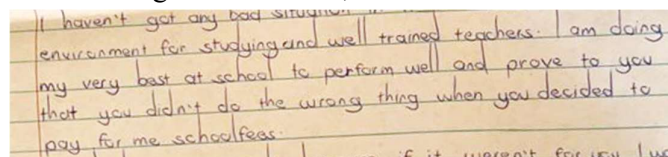 I haven't got any bad situation
environment for studying and well trained teachers. I am doing
my very best at school to perform well and prove to you
that you didn't do the wrong thing when you decided to
pay for me schoolfees.
if it weren't for you I